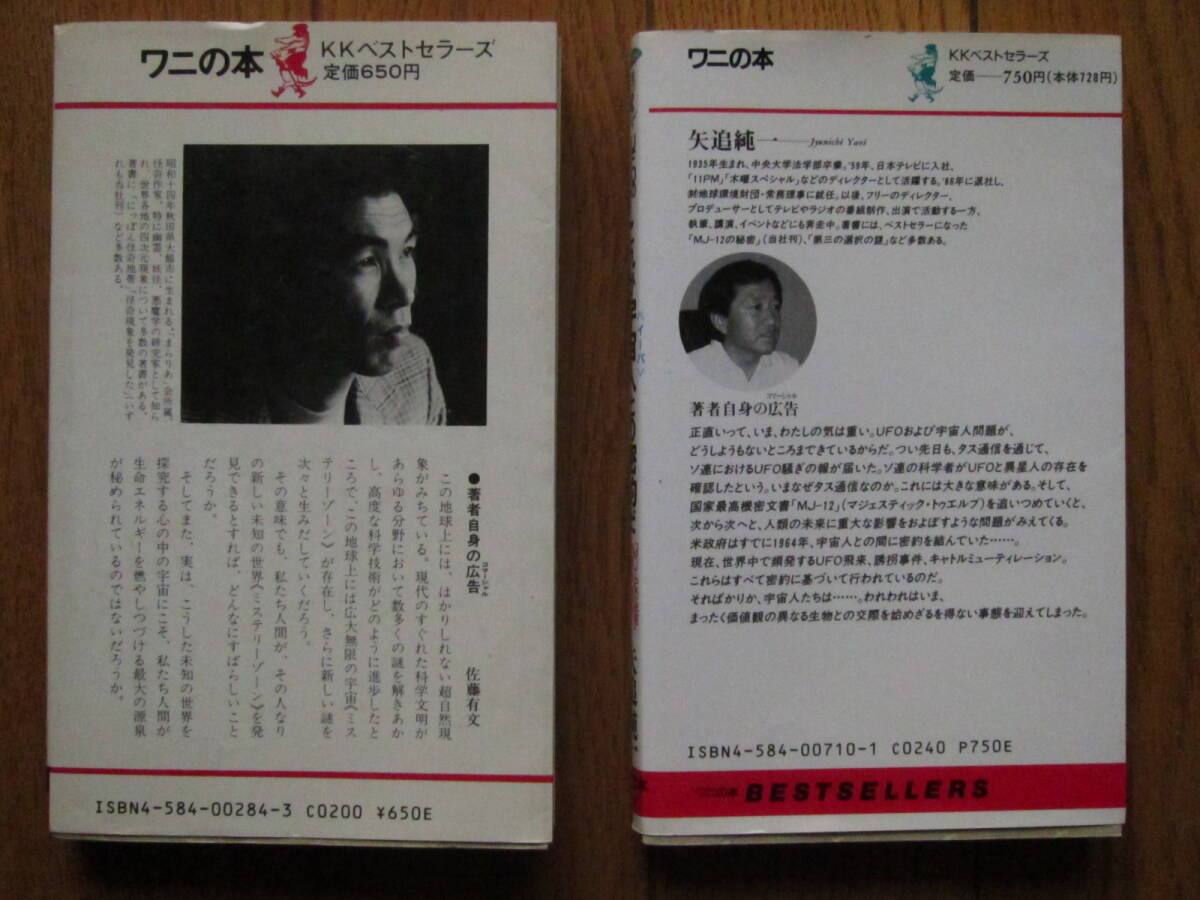 ワニの本
KKベストセラーズ
定価650円
昭和十四年秋田県大館市に生まれる。「まらりあ」会所属。
怪奇作家。特に幽霊、妖怪、悪魔学の研究家として知ら
れ、世界各地の四次元現象について多数の著書がある。
著書に「にっぽん怪奇地帯」「怪奇現象を発見した」(いず
れも当社刊)など多数ある。
●著者自身の広告
コマーシャル
佐藤有文
この地球上には、はかりしれない超自然現
象がみちている。現代のすぐれた科学文明が
あらゆる分野において数多くの謎を解きあか
し、高度な科学技術がどのように進歩したと
ころで、この地球上には広大無限の宇宙《ミス
テリーゾーン》が存在し、さらに新しい謎を
次々と生みだしていくだろう。
その意味でも、私たち人間が、その人なり
の新しい未知の世界《ミステリーゾーン》を発
見できるとすれば、どんなにすばらしいこと
だろうか。
そしてまた、実は、こうした未知の世界を
探究する心の中の宇宙にこそ、私たち人間が
生命エネルギーを燃やしつづける最大の源泉
が秘められているのではないだろうか。
ISBN4-584-00284-3 C0200 ¥650E
ワニの本
KKベストセラーズ
定価──750円(本体728円)
矢追純一──Jyunichi Yaoi
1935年生まれ、中央大学法学部卒業。'59年、日本テレビに入社、
「11PM」「木曜スペシャル」などのディレクターとして活躍する。'86年に退社し、
㈶地球環境財団・常務理事に就任。以後、フリーのディレクター、
プロデューサーとしてテレビやラジオの番組制作、出演で活動する一方、
執筆、講演、イベントなどにも奔走中。著書には、ベストセラーになった
「MJ-12の秘密」(当社刊)、「第三の選択の謎」など多数ある。
コマーシャル
著者自身の広告
正直いって、いま、わたしの気は重い。UFOおよび宇宙人問題が、
どうしようもないところまできているからだ。つい先日も、タス通信を通じて、
ソ連におけるUFO騒ぎの報が届いた。ソ連の科学者がUFOと異星人の存在を
確認したという。いまなぜタス通信なのか。これには大きな意味がある。そして、
国家最高機密文書「MJ-12」(マジェスティック・トゥエルブ)を追いつめていくと、
次から次へと、人類の未来に重大な影響をおよぼすような問題がみえてくる。
米政府はすでに1964年、宇宙人との間に密約を結んでいた……。
現在、世界中で頻発するUFO飛来、誘拐事件、キャトルミューティレーション。
これらはすべて密約に基づいて行われているのだ。
そればかりか、宇宙人たちは……。われわれはいま、
まったく価値観の異なる生物との交際を始めざるを得ない事態を迎えてしまった。
ISBN4-584-00710-1 C0240 P750E
ワニの本 BESTSELLERS